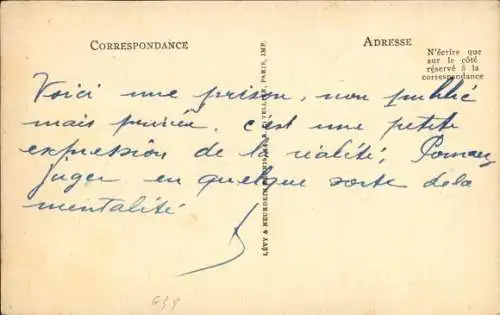 CORRESPONDANCE
ADRESSE
N'écrire que
sur le côté
réservé à la
correspondance
Voici une prison, non publié
mais privée. c'est une petite
expression de la réalité,
juger en quelque sorte de la
mentalité
LÉVY & NEURDEIN RÉUNIS, PARIS, IMP.